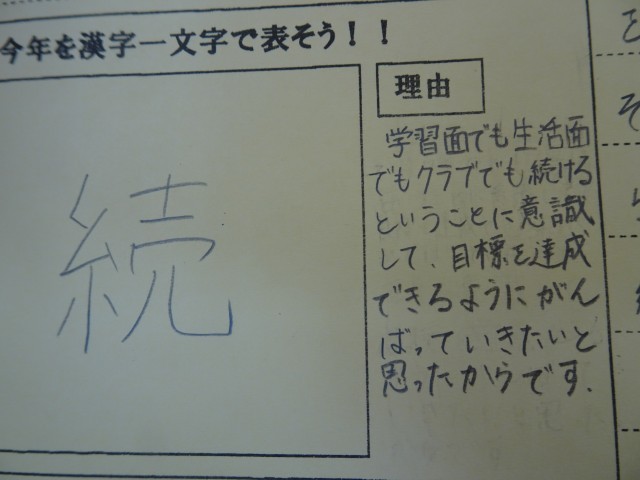 今年を漢字一文字で表そう！！
続
理由
学習面でも生活面
でもクラブでも続ける
ということに意識
して、目標を達成
できるようにがん
ばっていきたいと
思ったからです.